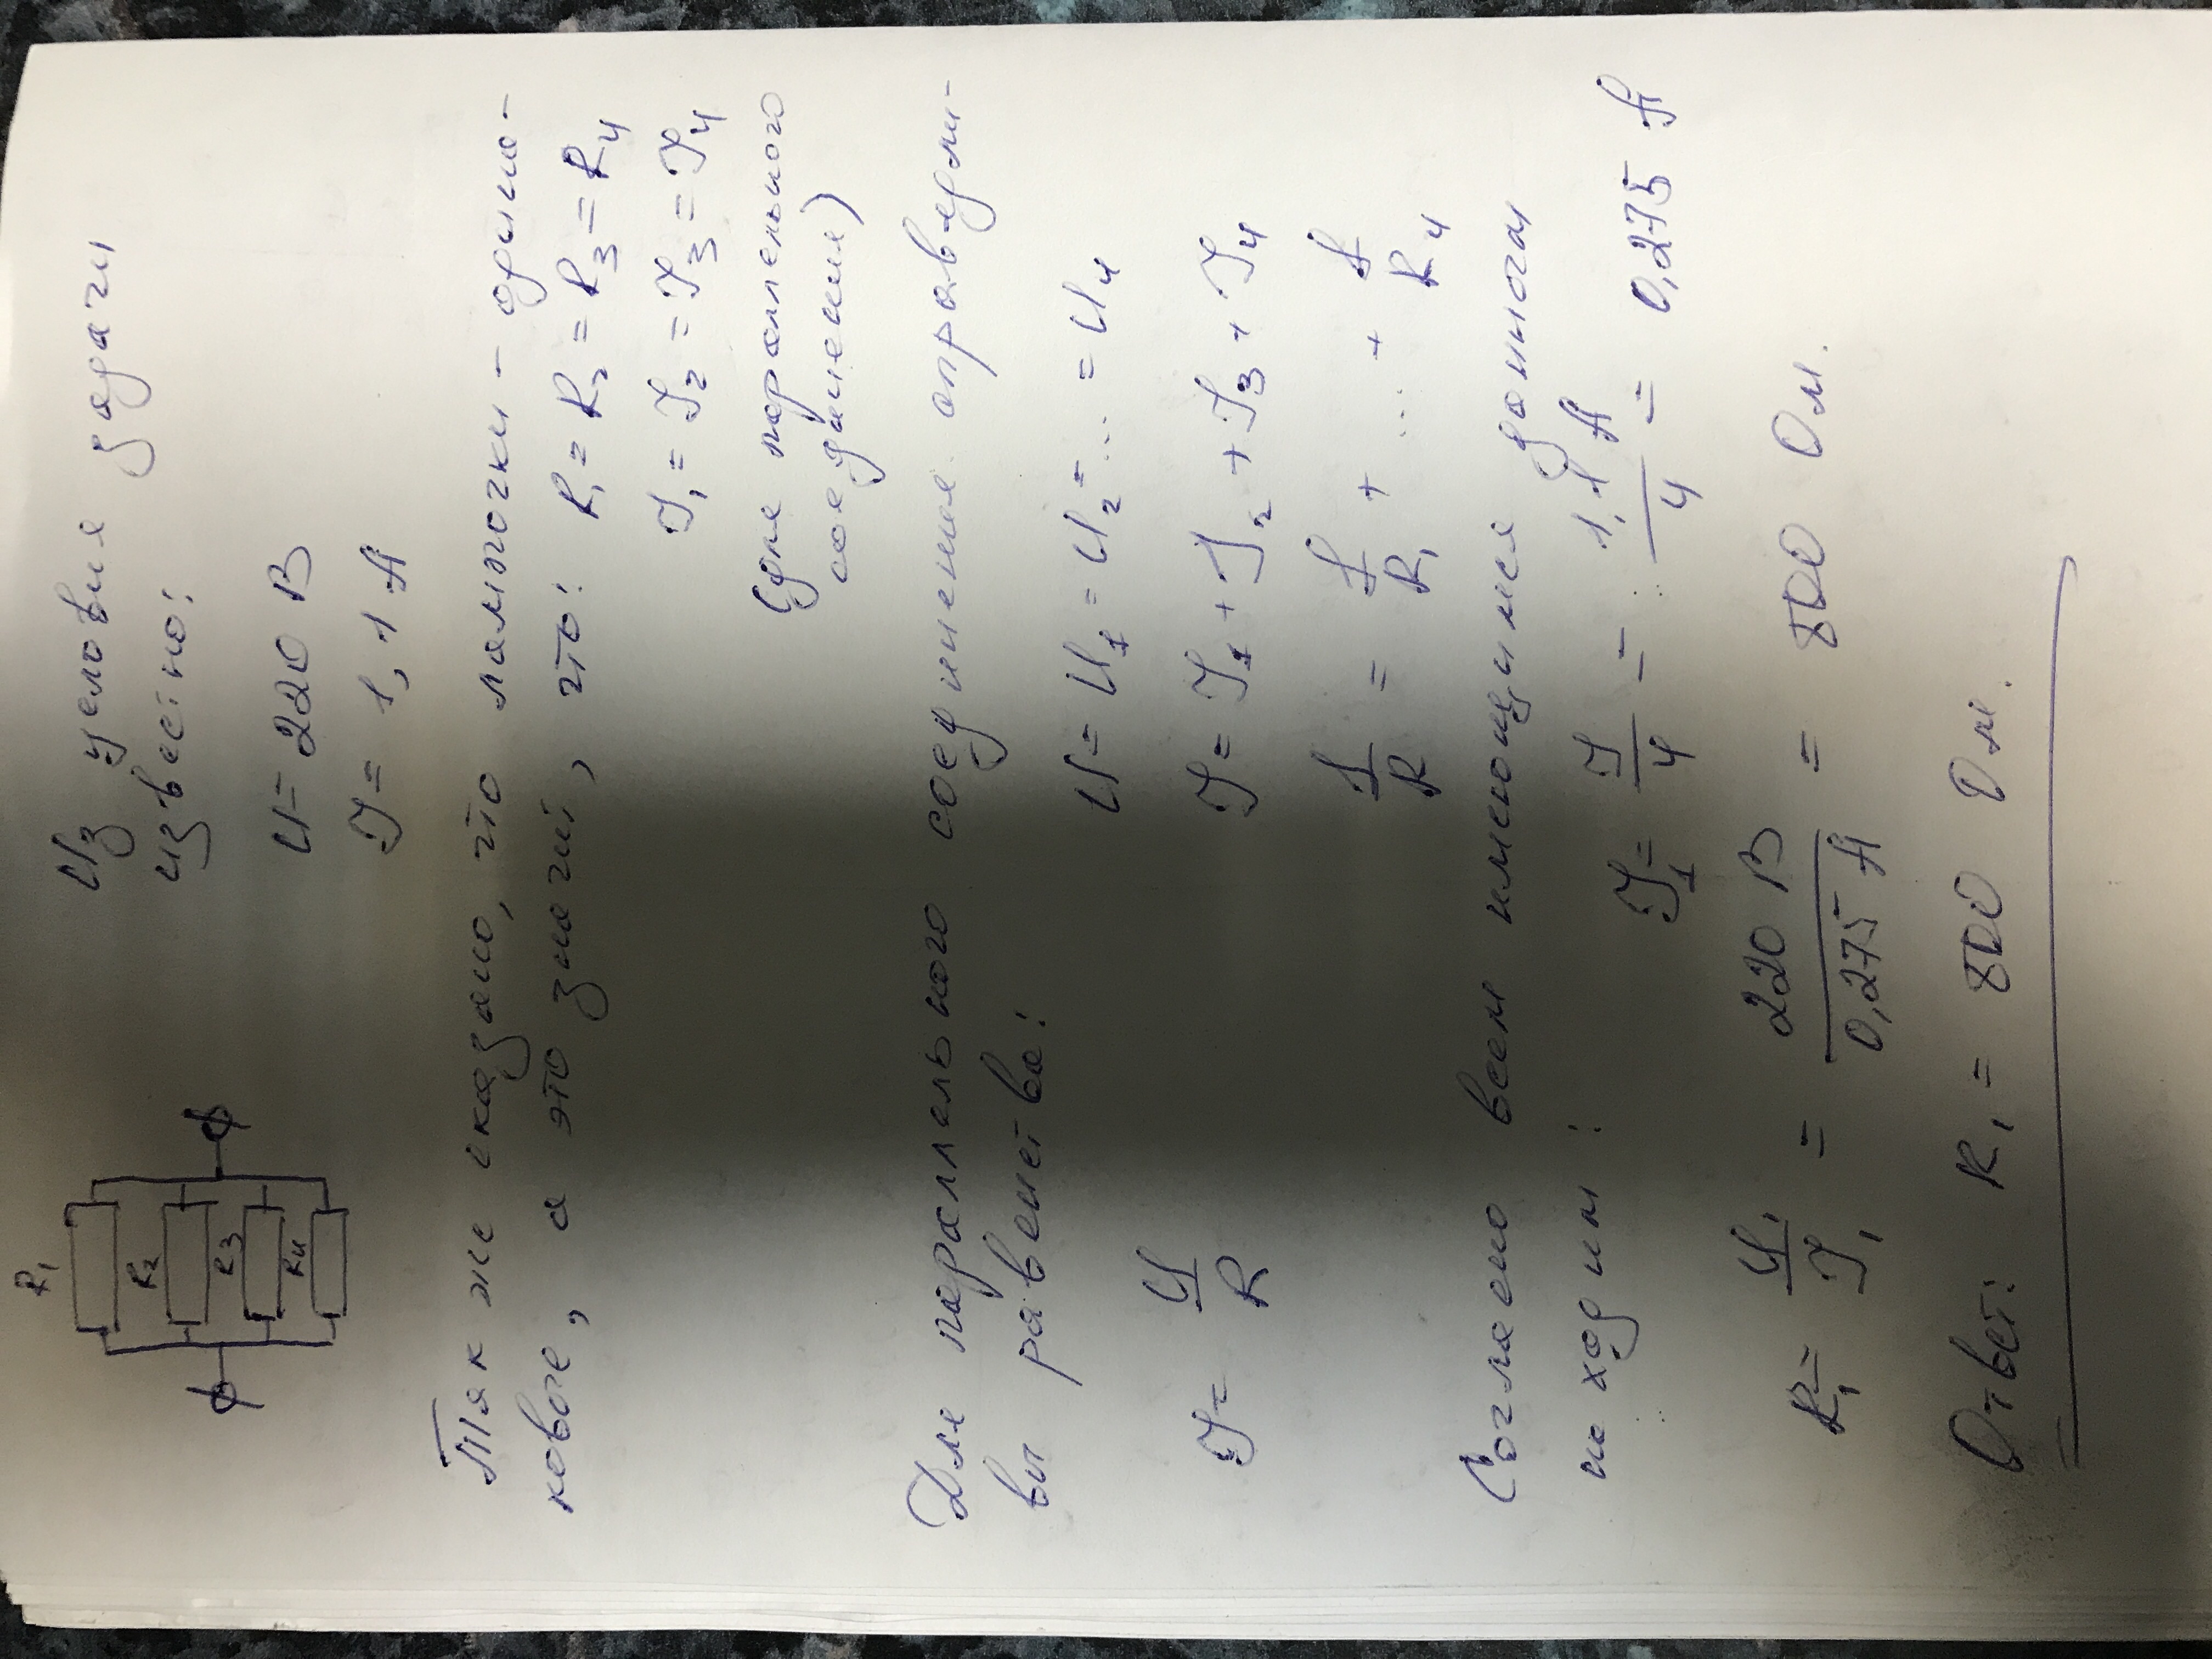 R₁
R₂
R₃
R₄
Из условия задачи
известно:
U = 220 В
I = 1,1 А
Так же сказано, что лампочки - одина-
ковые, а это значит, что: R₁ = R₂ = R₃ = R₄
I₁ = I₂ = I₃ = I₄
(для параллельного
соединения)
Для параллельного соединения справедли-
вы равенства:
U = U₁ = U₂ = ... = U₄
I = U/R
I = I₁ + I₂ + I₃ + I₄
1/R = 1/R₁ + ... + 1/R₄
Согласно всем имеющимся данным
находим:
I₁ = I/4 = 1,1 А/4 = 0,275 А
R₁ = U₁/I₁ = 220 В/0,275 А = 800 Ом.
Ответ: R₁ = 800 Ом.